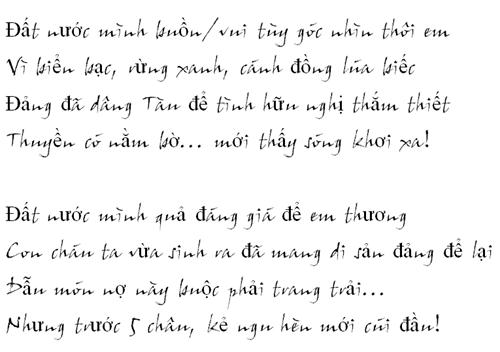 Đất nước mình buồn/vui tùy góc nhìn thôi em
Vì biển bạc, rừng xanh, cánh đồng lúa biếc
Đảng đã dâng Tàu để tình hữu nghị thắm thiết
Thuyền có nằm bờ... mới thấy sóng khơi xa!
Đất nước mình quả đáng giá để em thương
Con cháu ta vừa sinh ra đã mang di sản đảng để lại
Dẫu món nợ này buộc phải trang trải...
Nhưng trước 5 châu, kẻ ngu hèn mới cúi đầu!